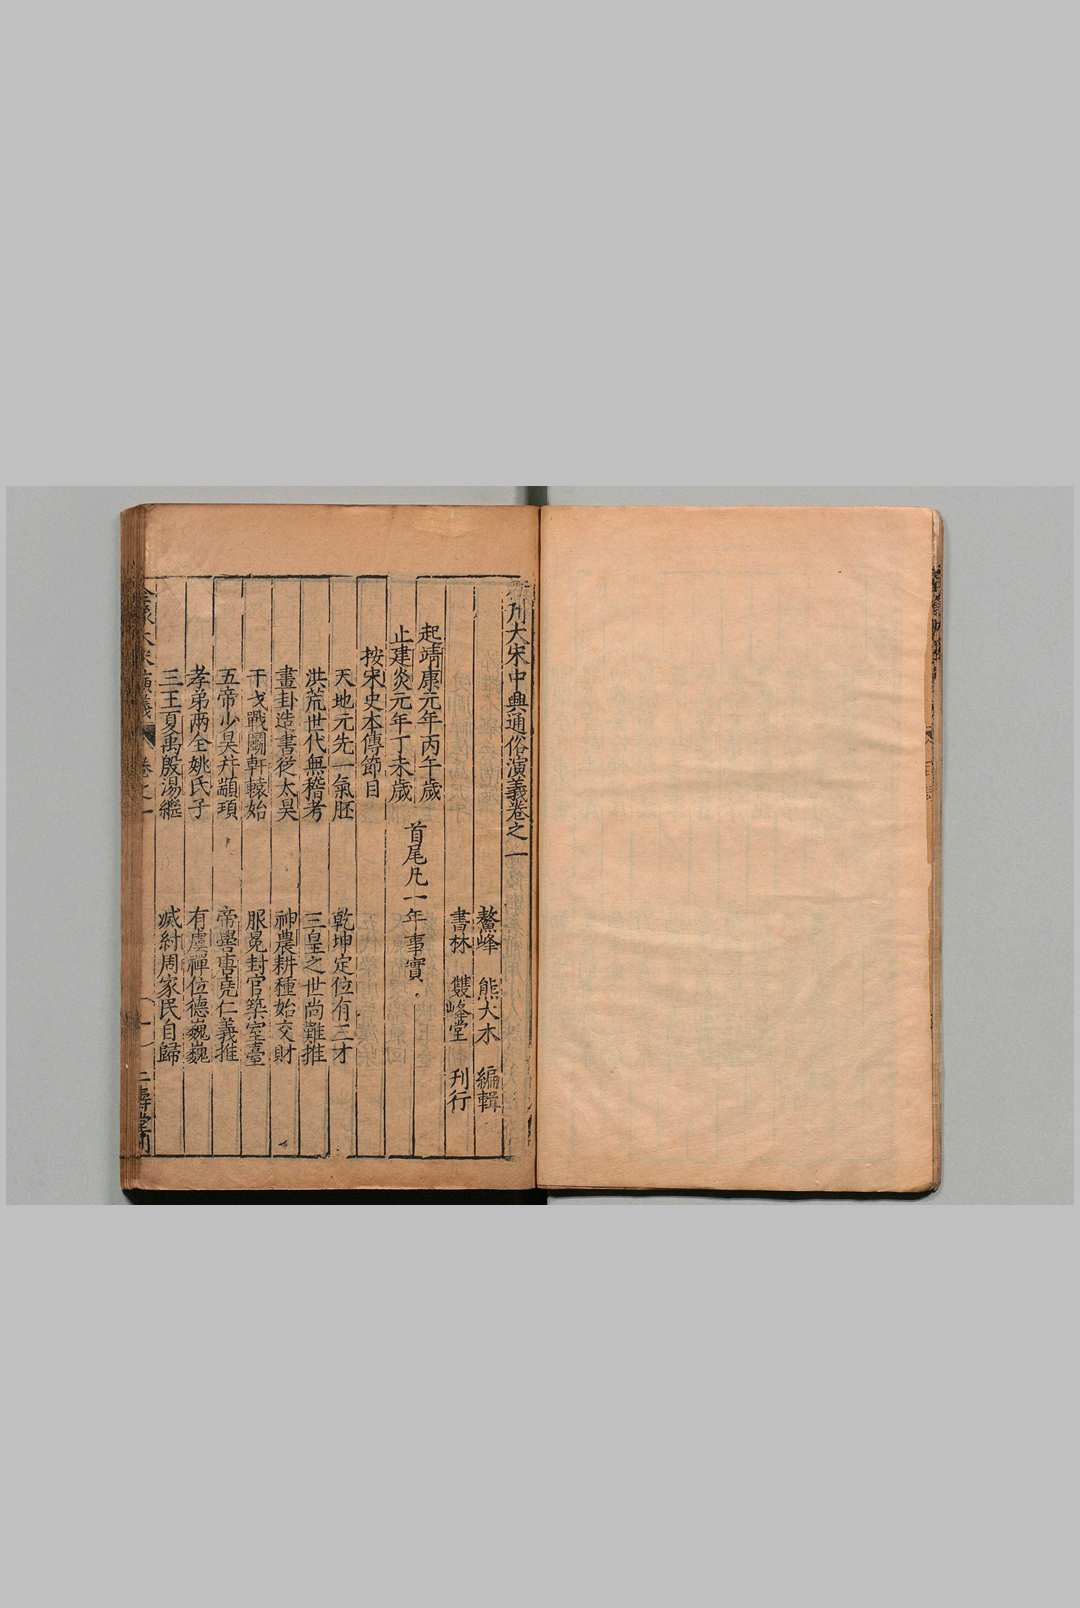 新刋大宋中興通俗演義卷之一
鰲峰 熊大木 編輯
書林 雙峰堂 刋行
起靖康元年丙午歲
止建炎元年丁未歲
首尾凡一年事實
按宋史本傳節目
天地元先一氣胚 乾坤定位有三才
洪荒世代無稽考 三皇之世尚難推
畫卦造書從太昊 神農耕種始交財
干戈戰鬪軒轅始 服冕封官築室臺
五帝少昊并顓頊 帝嚳唐堯仁義推
孝弟兩全姚氏子 有虞禪位德巍巍
三王夏禹殷湯繼 滅紂周家民自歸
全像大宋演義 卷之一 (一)